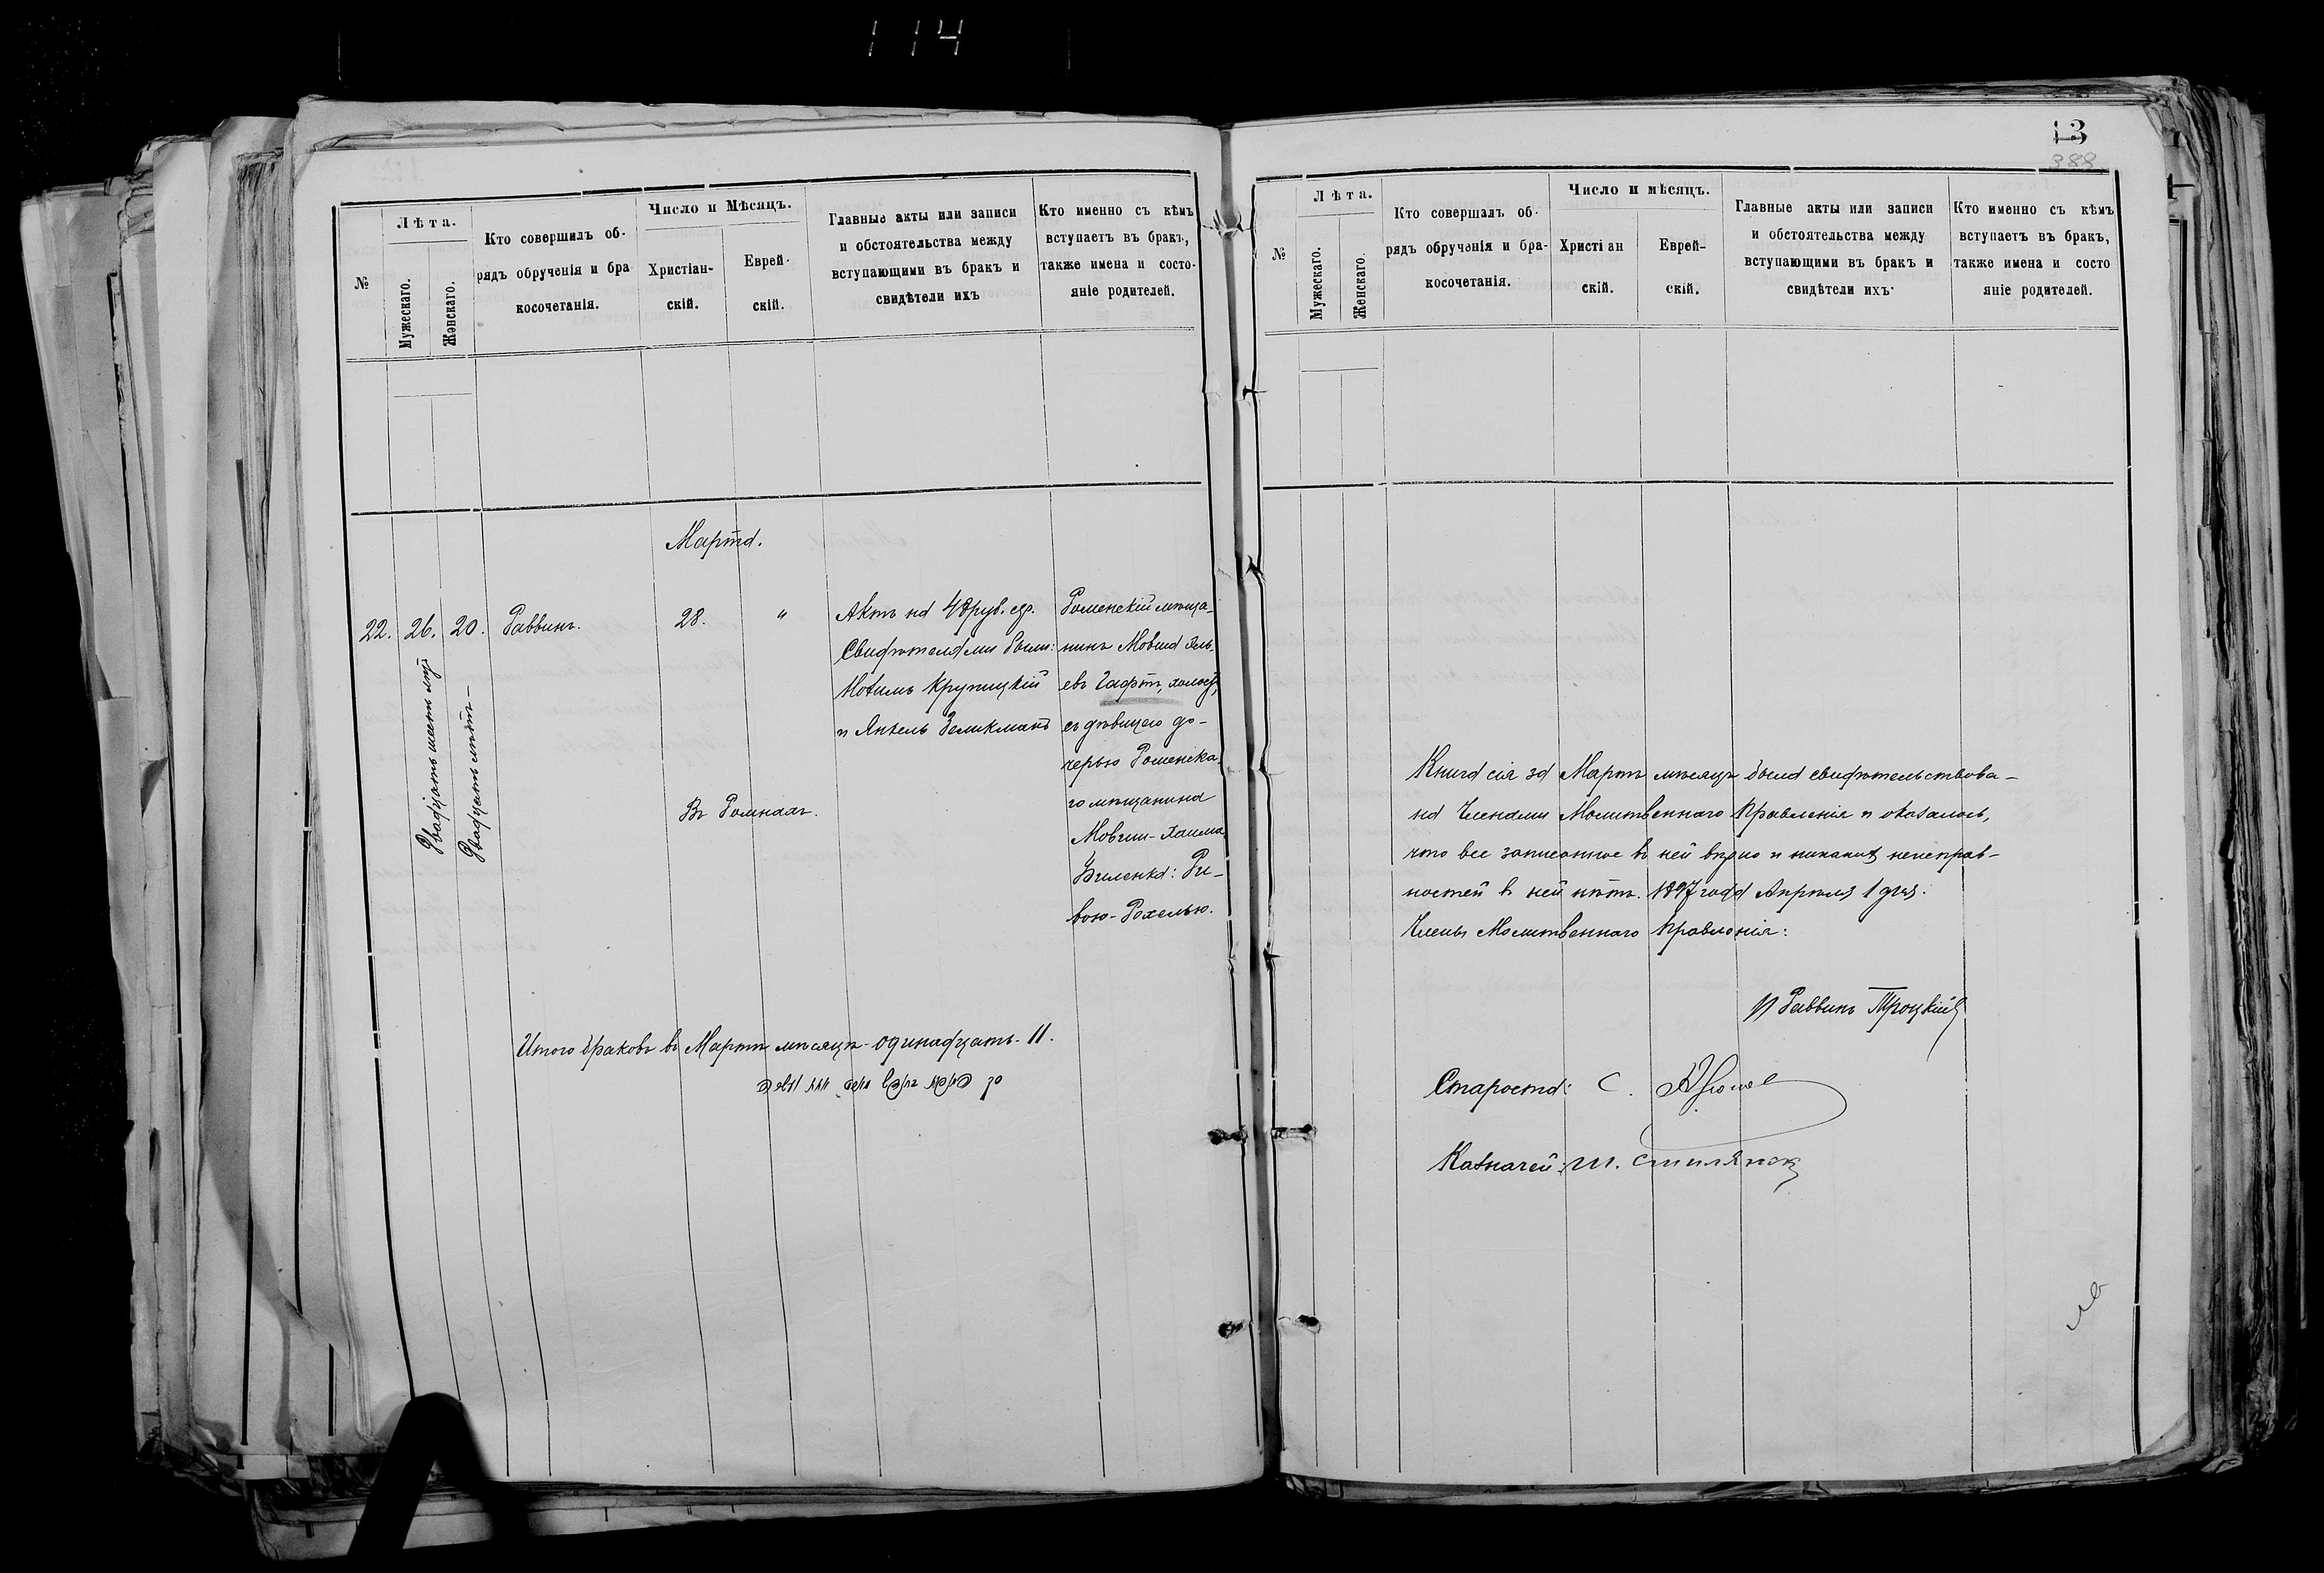 114
№
Лѣта.
Мужескаго.
Женскаго.
Кто совершилъ об-
рядъ обрученія и бра
косочетанія.
Число и Мѣсяцъ.
Христіан-
скій.
Еврей-
скій.
Главные акты или записи
и обстоятельства между
вступающими въ бракъ и
свидѣтели ихъ
Кто именно съ кѣмъ
вступаетъ въ бракъ,
также имена и состо-
яніе родителей.
Марта.
22.
26.
Двадцать шесть лѣтъ
20.
Двадцать лѣтъ
Раввинъ.
28.
"
Въ Ромнахъ.
Актъ на 48 руб. сер.
Свидѣтелями были:
Крупицкій
и Янкель Зеликманъ
Роменскій мѣща-
нинъ Мовша
евъ Гафтъ, холостъ,
съ дѣвицею до-
черью Роменска-
го мѣщанина
Мовши-Хаима
Виленка: Ри-
вою-Рохелью.
Итого браковъ въ Мартѣ мѣсяцѣ - одинадцать. 11.
13
388
№
Лѣта.
Мужескаго.
Женскаго.
Кто совершалъ об-
рядъ обрученія и бра-
косочетанія.
Число и мѣсяцъ.
Христіан
скій.
Еврей-
скій.
Главные акты или записи
и обстоятельства между
вступающими въ бракъ и
свидѣтели ихъ
Кто именно съ кѣмъ
вступаетъ въ бракъ,
также имена и состо
яніе родителей.
Книга сія за Мартъ мѣсяцъ была свидѣтельствова-
на Членами Молитвеннаго Правленія и оказалось,
что все записанное въ ней вѣрно и никакихъ неисправ-
ностей въ ней нѣтъ. 1897 года Апрѣля 1 дня.
Члены Молитвеннаго Правленія:
Раввинъ Троцкій
Староста: С.
Казначей: Ш.